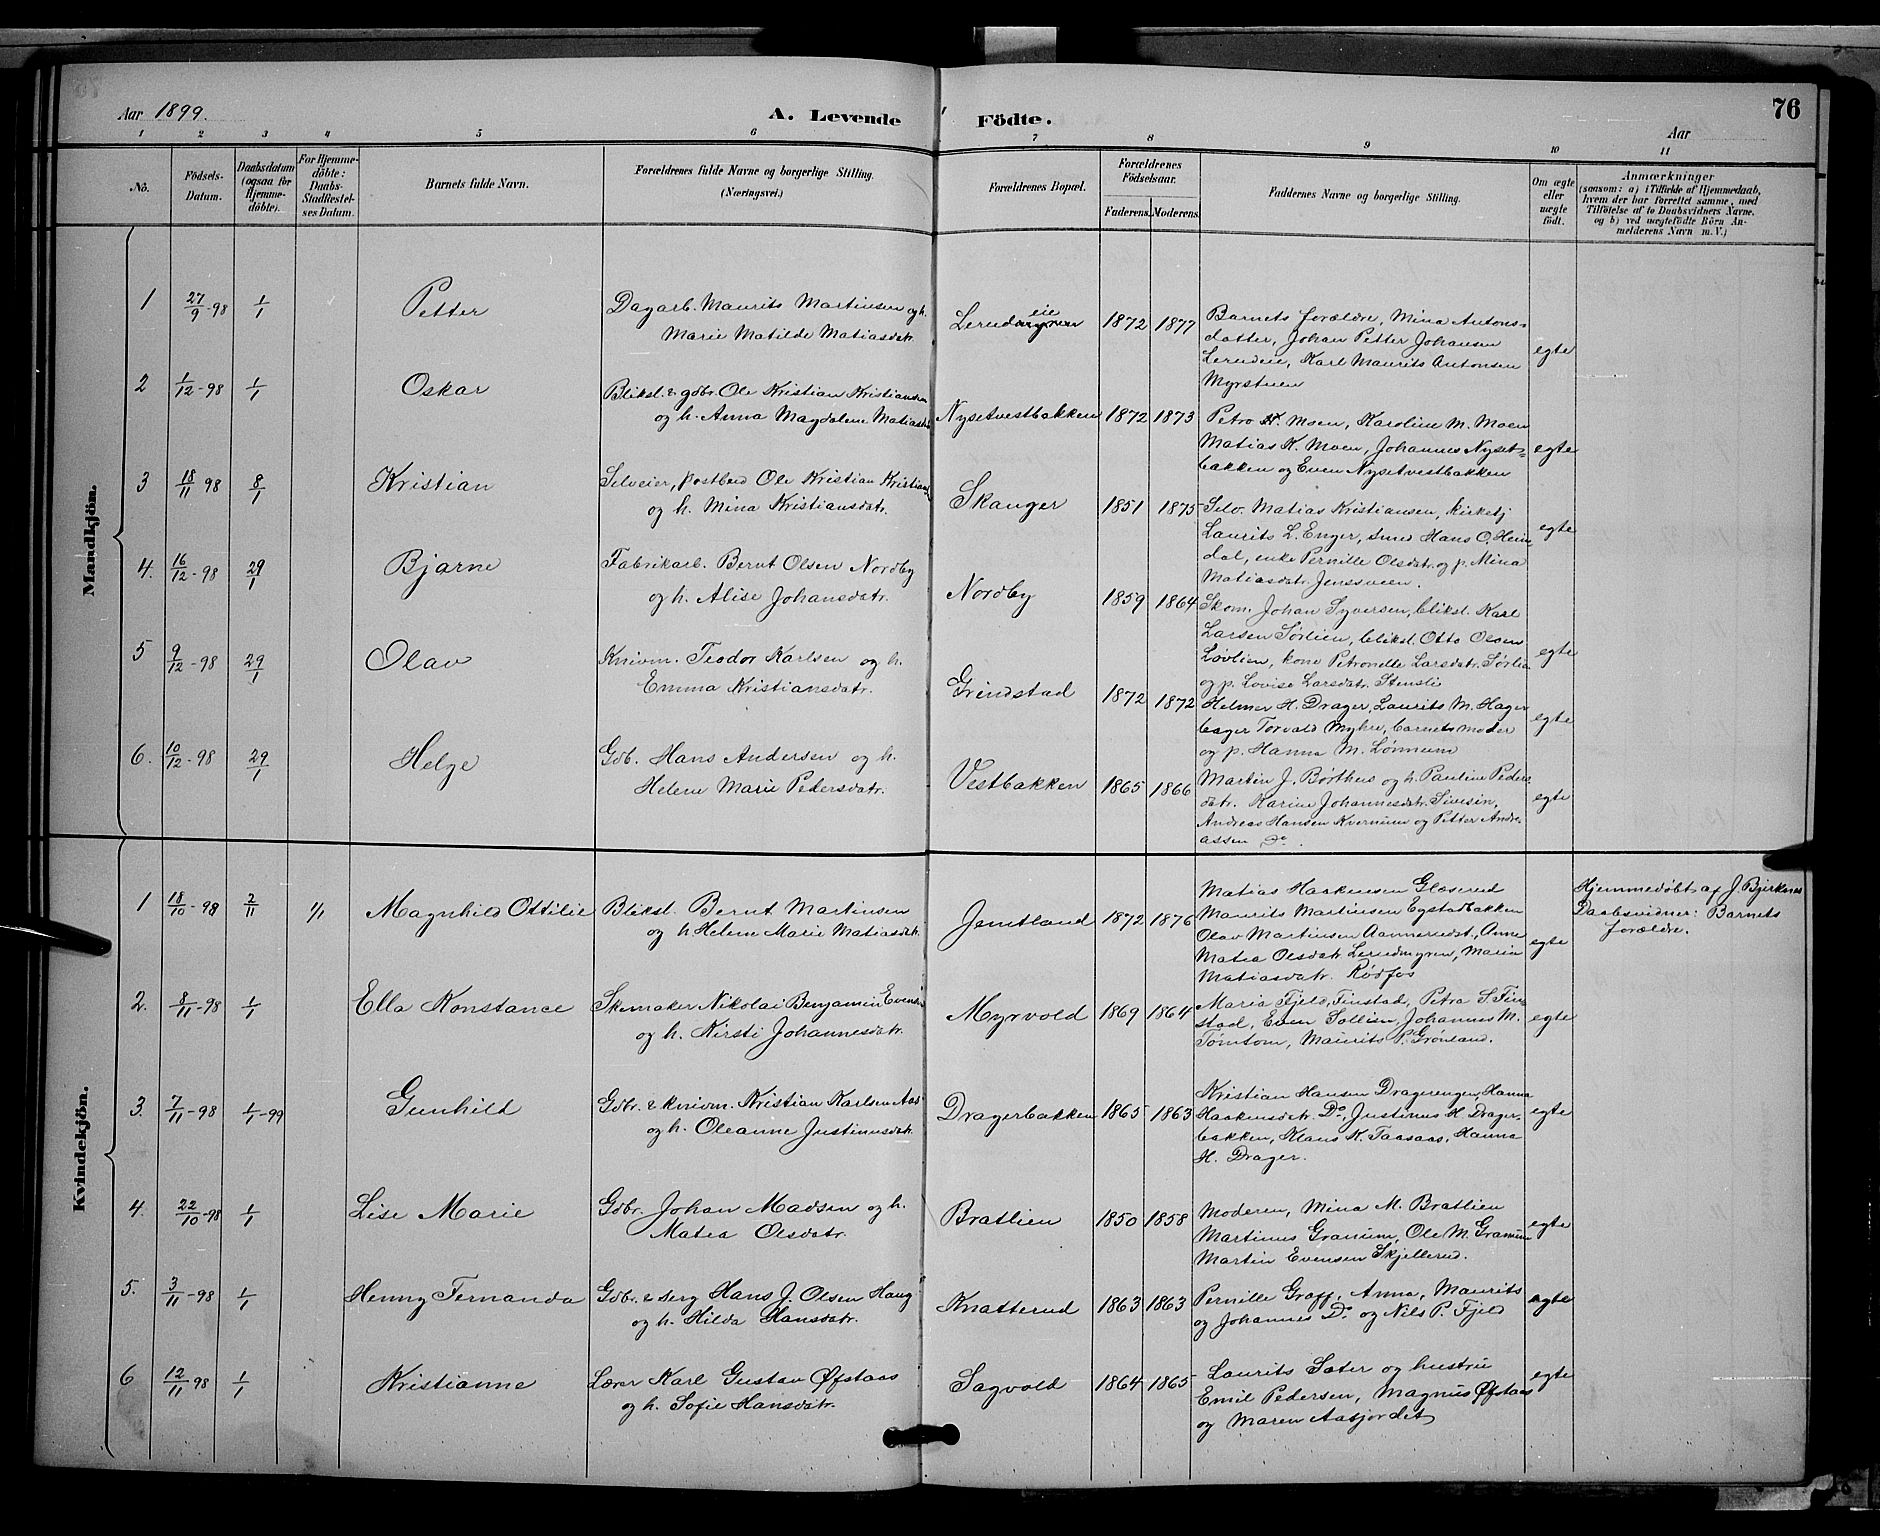 Aar 1899.
A. Levende Födte.
76
Aar
1 2 3 4 5 6 7 8 9 10 11
No.
Födsels-Datum.
Daabsdatum (ogsaa for Hjemme-döbte).
For Hjemme-döbte: Daabs-Stadfæstel-ses Datum.
Barnets fulde Navn.
Forældrenes fulde Navne og borgerlige Stilling. (Næringsvei.)
Forældrenes Bopæl.
Forældrenes Födselsaar.
Faderens. Moderens.
Faddernes Navne og borgerlige Stilling.
Om ægte eller uægte födt.
Anmærkninger
(saasom: a) i Tilfælde af Hjemmedaab,
hvem der har forrettet samme, med
Tilföielse af to Daabsvidners Navne,
og b) ved uægtefödte Börn An-
melderens Navn m. V.)
Mandkjön.
1 27/9-98 1/1 Petter
Dagarb. Maurits Martinsen og h.
Marie Matilde Matiasdatr.
Lerudeie 1872 1877
Barnets forældre, Mina Antons-
datter, Johan Petter Johansen
Lerudeie, Karl Maurits Antonsen
Myrstuen
egte
2 1/12-98 1/1 Oskar
Bliksl. & gdbr. Ole Kristian Kristiansen
og h. Anna Magdalene Matiasdtr.
Nysetvestbakken 1872 1873
Petro K. Moen, Karoline M. Moen
Matias K. Moen, Johannes Nyset-
bakken og Even Nysetvestbakken
egte
3 18/11 98 8/1 Kristian
Selveier, postbud Ole Kristian Kristiansen
og h. Mina Kristiansdatr.
Skanger 1851 1875
Selv. Matias Kristiansen, kirketj
Laurits L. Enger, smed Hans O. Heim
dal, enke Pernille Olsdatr. og p. Mina
Matiasdatr. Jensveen.
egte
4. 16/12-98 29/1 Bjarne
Fabrikarb. Bernt Olsen Nordby
og h. Alise Johansdatr.
Nordby 1859 1864
Skom. Johan Syversen, bliksl. Karl
Larsen Sørlien, bliksl. Otto Olsen
Løvlien, kone Petronelle Larsdatr. Sørlien
og p. Lovise Larsdatr. Stensli
egte
5 9/12-98 29/1 Olav
Knivm. Teodor Karlsen og h.
Emma Kristiansdatr.
Grindstad 1872 1872
Helmer H. Drager, Laurits M. Hager
bager Torvald Myhre, barnets moder
og p. Hanna M. Lønnum
egte
6. 10/12-98 29/1 Helge
Gdb. Hans Andersen og h.
Helene Marie Pedersdatr.
Vestbakken 1865 1866
Martin J. Børthus og h. Pauline Peders
datr. Karine Johannesdatr. Sivesin,
Andreas Hansen Kvernum og Petter Andre-
assen Do.
egte
Kvindekjön.
1 18/10-98 2/11 1/1 Magnhild Ottilie
Bliksl. Bernt Martinsen
og h. Helene Marie Matiasdatr.
Jemtland 1872 1876
Matias Haakensen Glæserud
Maurits Martinsen Egstadbakken
Olav Martinsen Aannerudst., Anne
Matea Olsdatr. Lerudmyren, Marin
Matiasdatr. Rødfos
egte
Hjemmedøbt af J. Bjerknes
Daabsvidner: Barnets
forældre.
2. 8/11-98 1/1 Ella Konstance
Skomaker Nikolai Benjamin Evensen
og h. Kirsti Johannesdatr.
Myrvold 1869 1864
Maria Fjeld, Finstad, Petra S. Fin-
stad, Even Sollien, Johannes M.
Tømtom, Maurits P. Grønland.
egte
3. 7/11-98 1/1-99 Gunhild
Gdbr. & knivm. Kristian Karlsen Aas
og h. Oleanne Justinusdatr.
Dragerbakken 1865 1863
Kristian Hansen Dragerenger, Hanna
Haakensdatr. Do, Justinus H. Drager
bakken, Klaus K. Taasaas, Hanna
H. Drager.
egte
4. 22/10-98 1/1 Lise Marie
Gdbr. Johan Madsen og h.
Matea Olsdatr.
Bratlien 1850 1858
Moderen, Mina M. Bratlien
Martinus Granum, Ole M. Granum
Martin Evensen Skjellerud.
egte
5. 3/11-98 1/1 Henny Fernanda
Gdbr. & serg Hans J. Olsen Haug
og h. Hilda Hansdatr.
Knatterud 1863 1863
Pernille Graff, Anna, Maurits
og Johannes Do. og Nils P. Fjeld
egte
6 12/11 98 1/1 Kristianne
Lærer Karl Gustav Øfstaas
og h. Sofie Hansdatr.
Sagvold 1864 1865
Laurits Sater og hustru
Emil Pedersen, Magnus Øfstaas
og Maren Aasjordet
egte